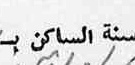 سنة الساكن بـ